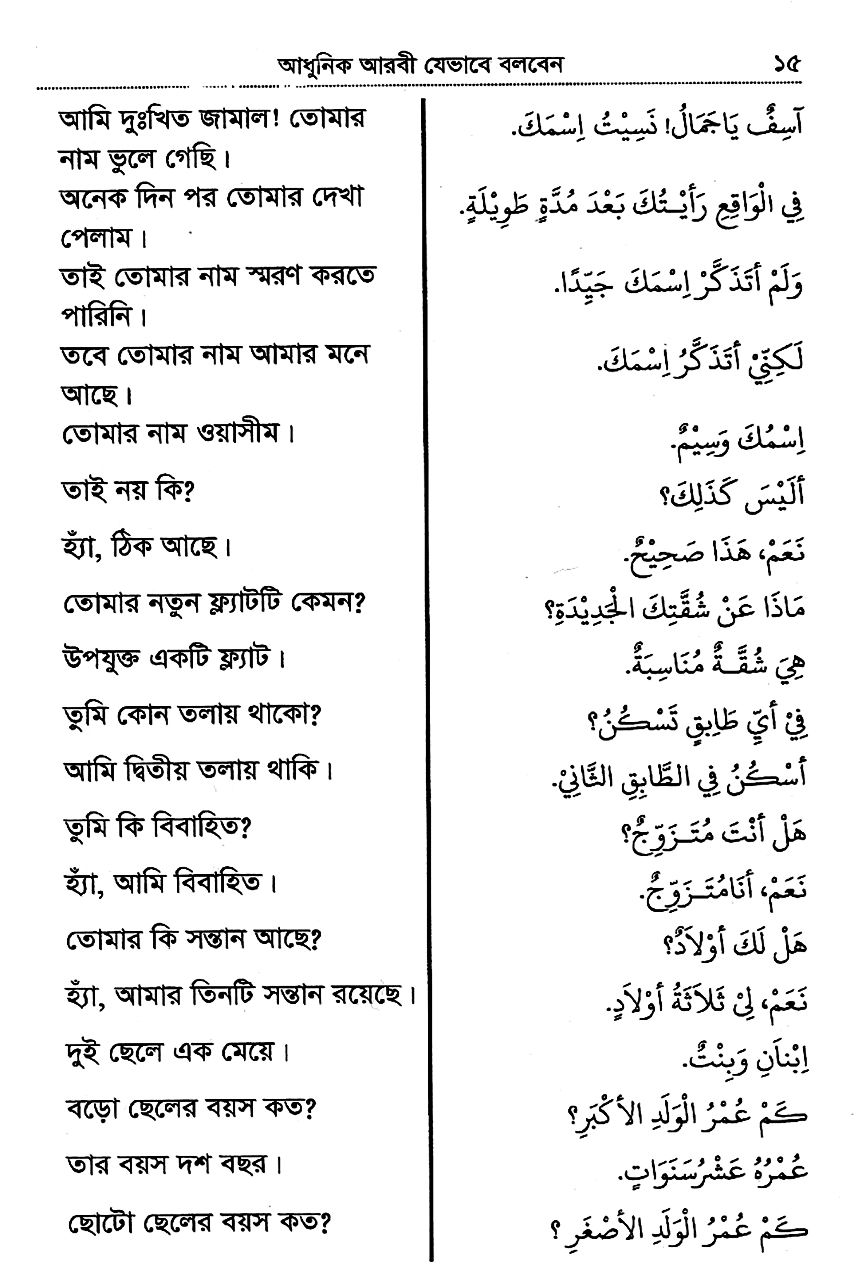 আধুনিক আরবী যেভাবে বলবেন ১৫
আমি দুঃখিত জামাল! তোমার
নাম ভুলে গেছি।
آسِفٌ يَاجَمَالُ! نَسِيْتُ اِسْمَكَ.
অনেক দিন পর তোমার দেখা
পেলাম।
فِي الْوَاقِعِ رَأَيْتُكَ بَعْدَ مُدَّةٍ طَوِيْلَةٍ.
তাই তোমার নাম স্মরণ করতে
পারিনি।
وَلَمْ أَتَذَكَّرْ اِسْمَكَ جَيِّدًا.
তবে তোমার নাম আমার মনে
আছে।
لَكِنِّيْ أَتَذَكَّرُ اِسْمَكَ.
তোমার নাম ওয়াসীম।
اِسْمُكَ وَسِيْمٌ.
তাই নয় কি?
أَلَيْسَ كَذَلِكَ؟
হ্যাঁ, ঠিক আছে।
نَعَمْ، هَذَا صَحِيْحٌ.
তোমার নতুন ফ্ল্যাটটি কেমন?
مَاذَا عَنْ شُقَّتِكَ الْجَدِيْدَةِ؟
উপযুক্ত একটি ফ্ল্যাট।
هِيَ شُقَّةٌ مُنَاسِبَةٌ.
তুমি কোন তলায় থাকো?
فِيْ أَيِّ طَابِقٍ تَسْكُنُ؟
আমি দ্বিতীয় তলায় থাকি।
أَسْكُنُ فِي الطَّابِقِ الثَّانِيْ.
তুমি কি বিবাহিত?
هَلْ أَنْتَ مُتَزَوِّجٌ؟
হ্যাঁ, আমি বিবাহিত।
نَعَمْ، أَنَامُتَزَوِّجٌ.
তোমার কি সন্তান আছে?
هَلْ لَكَ أَوْلاَدٌ؟
হ্যাঁ, আমার তিনটি সন্তান রয়েছে।
نَعَمْ، لِيْ ثَلاَثَةُ أَوْلاَدٍ.
দুই ছেলে এক মেয়ে।
اِبْنَانِ وَبِنْتٌ.
বড়ো ছেলের বয়স কত?
كَمْ عُمْرُ الْوَلَدِ الأَكْبَرِ؟
তার বয়স দশ বছর।
عُمْرُهُ عَشْرُسَنَوَاتٍ.
ছোটো ছেলের বয়স কত?
كَمْ عُمْرُ الْوَلَدِ الأَصْغَرِ ؟